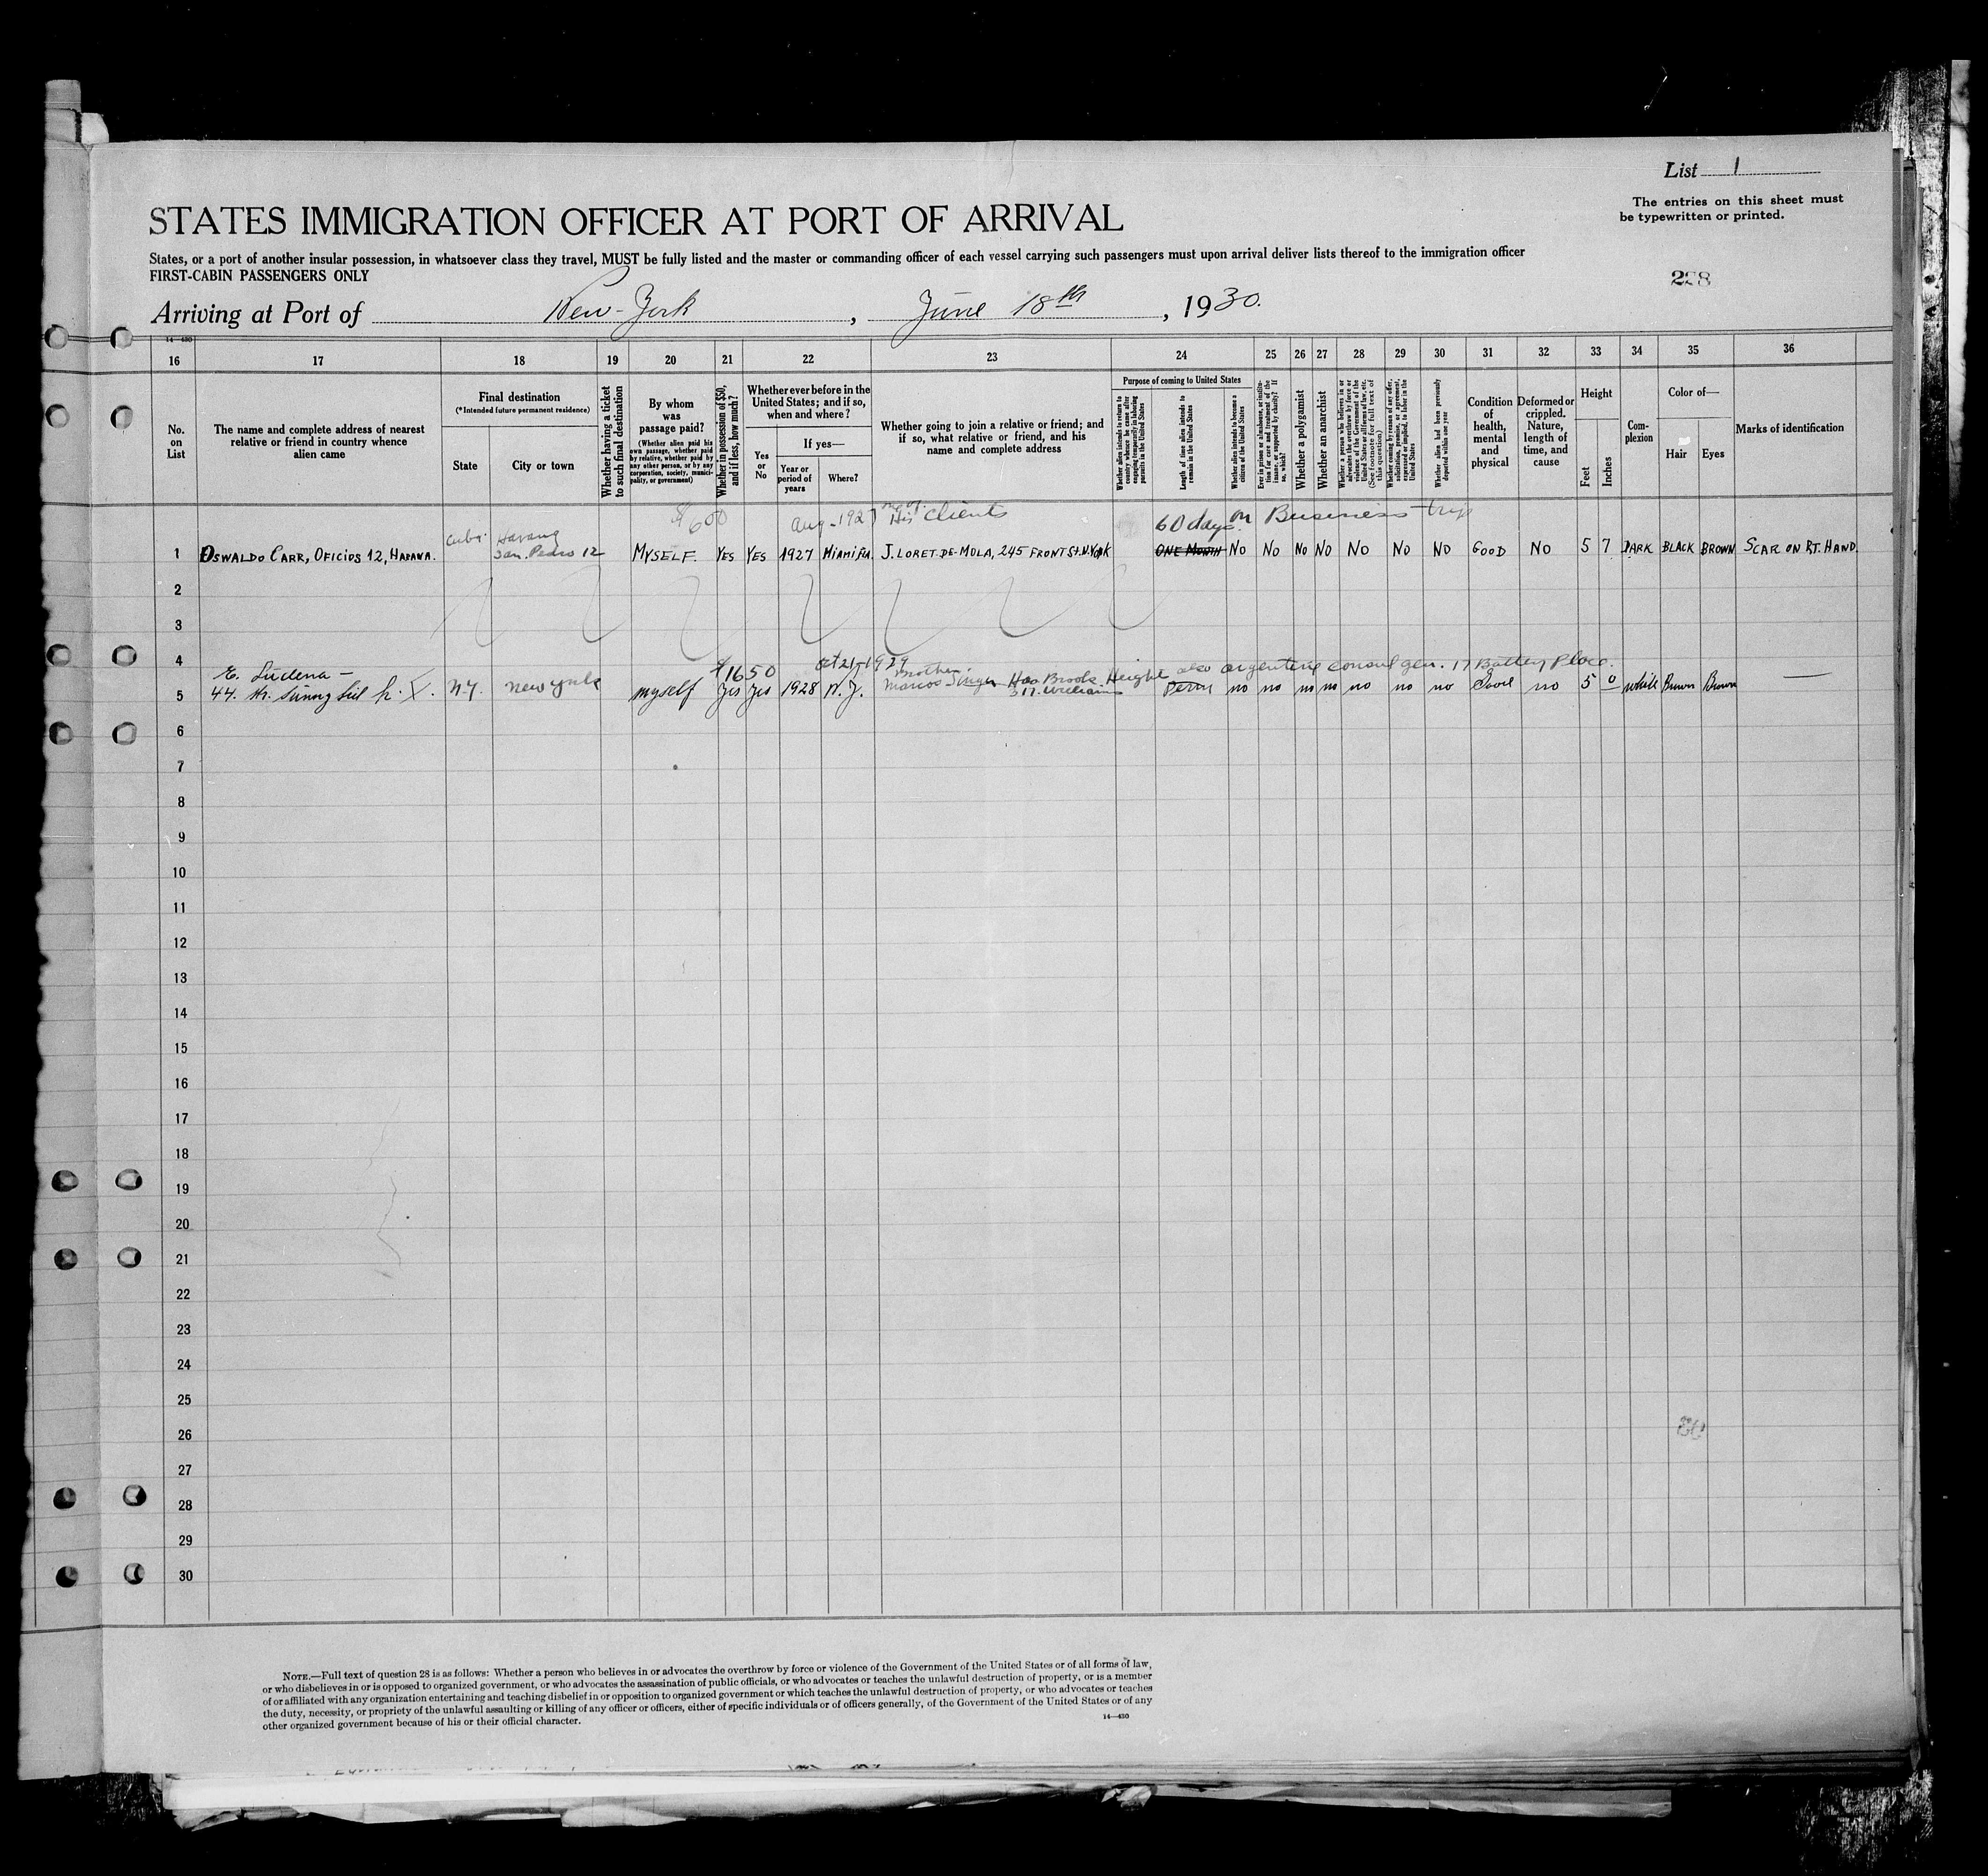 List 1
The entries on this sheet must
be typewritten or printed.
STATES IMMIGRATION OFFICER AT PORT OF ARRIVAL
States, or a port of another insular possession, in whatsoever class they travel, MUST be fully listed and the master or commanding officer of each vessel carrying such passengers must upon arrival deliver lists thereof to the immigration officer
FIRST-CABIN PASSENGERS ONLY
Arriving at Port of New-York, June 18th, 1930.
14—430
16 17 18 19 20 21 22 23 24 25 26 27 28 29 30 31 32 33 34 35 36
No.
on
List
The name and complete address of nearest
relative or friend in country whence
alien came
Final destination
(*Intended future permanent residence)
State
City or town
Whether having a ticket
to such final destination
By whom
was
passage paid?
(Whether alien paid his
own passage, whether paid
by relative, whether paid by
any other person, or by any
corporation, society, munici-
pality, or government)
Whether in possession of $50,
and if less, how much?
Whether ever before in the
United States; and if so,
when and where?
Yes
or
No
If yes—
Year or
period of
years
Where?
Whether going to join a relative or friend; and
if so, what relative or friend, and his
name and complete address
Purpose of coming to United States
Whether alien intends to return to
country whence he came after
engaging temporarily in laboring
pursuits in the United States
Length of time alien intends to
remain in the United States
Whether alien intends to become a
citizen of the United States
Ever in prison or almshouse, or institu-
tion for care and treatment of the
insane, or supported by charity? If
so, which?
Whether a polygamist
Whether an anarchist
Whether a person who believes in or
advocates the overthrow by force or
violence of the Government of the
United States or all forms of law, etc.
(See footnote for full text of
this question)
Whether coming by reason of any offer,
solicitation, promise, or agreement,
expressed or implied, to labor in the
United States
Whether alien had been previously
deported within one year
Condition
of
health,
mental
and
physical
Deformed or
crippled.
Nature,
length of
time, and
cause
Height
Feet
Inches
Com-
plexion
Color of—
Hair
Eyes
Marks of identification
$600 Aug-1927 His Clients 60 days on Business trip
Cuba Havana
San Pedro 12
1 OSWALDO CARR, OFICIOS 12, HABANA. MYSELF. YES YES 1927 MIAMI Fla. J. LORET-DE-MOLA, 245 FRONT St. N. YORK ONE MONTH NO NO NO NO NO NO NO GOOD NO 5 7 DARK BLACK BROWN SCAR ON RT. HAND.
2
3
4
$1650 Oct 21-1929 Brother. Height also argentine consul gen. 17 Battery Place.
5 N.Y. New York myself Yes Yes 1928 N.J. Marcos 317. Williams Perm no no no no no no no Good no 5 0 white Brown Brown —
6
7
8
9
10
11
12
13
14
15
16
17
18
19
20
21
22
23
24
25
26
27
28
29
30
NOTE.—Full text of question 28 is as follows: Whether a person who believes in or advocates the overthrow by force or violence of the Government of the United States or of all forms of law,
or who disbelieves in or is opposed to organized government, or who advocates the assassination of public officials, or who advocates or teaches the unlawful destruction of property, or is a member
of or affiliated with any organization entertaining and teaching disbelief in or opposition to organized government or which teaches the unlawful destruction of property, or who advocates or teaches
the duty, necessity, or propriety of the unlawful assaulting or killing of any officer or officers, either of specific individuals or of officers generally, of the Government of the United States or of any
other organized government because of his or their official character.
14—430